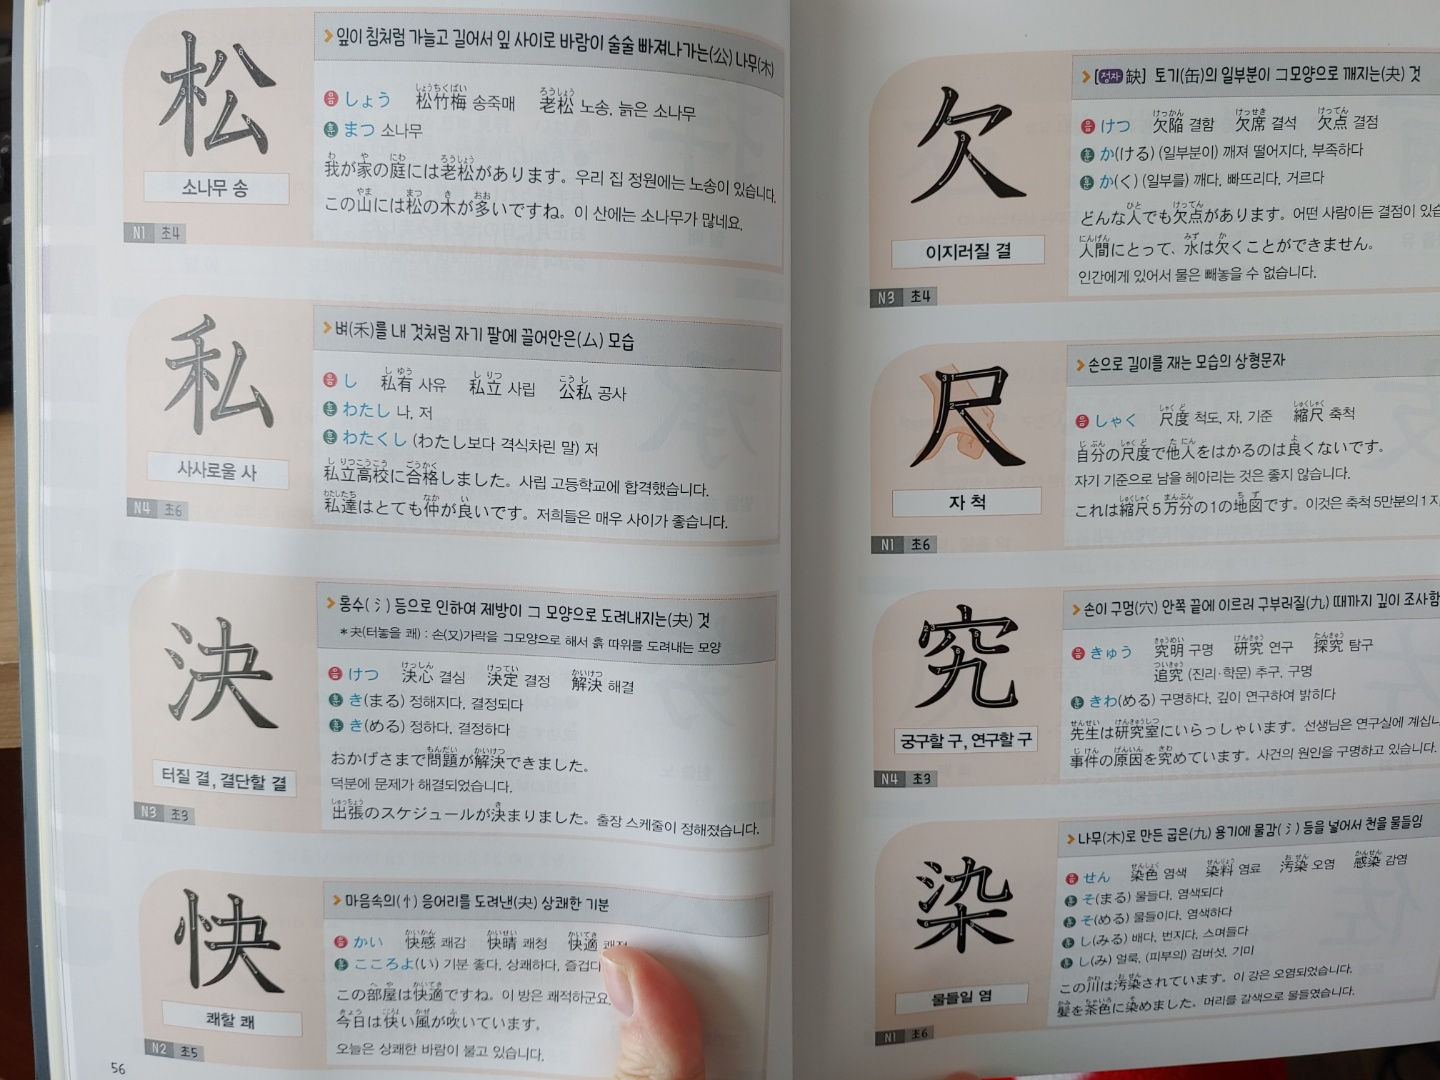 松
소나무 송
N1 초4
잎이 침처럼 가늘고 길어서 잎 사이로 바람이 술술 빠져나가는(公) 나무(木)
음 しょう 松竹梅 송죽매 老松 노송, 늙은 소나무
훈 まつ 소나무
我が家の庭には老松があります。우리 집 정원에는 노송이 있습니다.
この山には松の木が多いですね。이 산에는 소나무가 많네요.
私
사사로울 사
N4 초6
벼(禾)를 내 것처럼 자기 팔에 끌어안은(厶) 모습
음 し 私有 사유 私立 사립 公私 공사
훈 わたし 나, 저
훈 わたくし (わたし보다 격식차린 말) 저
私立高校に合格しました。사립 고등학교에 합격했습니다.
私達はとても仲が良いです。저희들은 매우 사이가 좋습니다.
決
터질 결, 결단할 결
N3 초3
홍수(氵) 등으로 인하여 제방이 그 모양으로 도려내지는(夬) 것
*夬(터놓을 쾌) : 손(又)가락을 그모양으로 해서 흙 따위를 도려내는 모양
음 けつ 決心 결심 決定 결정 解決 해결
훈 き(まる) 정해지다, 결정되다
훈 き(める) 정하다, 결정하다
おかげさまで問題が解決できました。
덕분에 문제가 해결되었습니다.
出張のスケジュールが決まりました。출장 스케줄이 정해졌습니다.
快
쾌할 쾌
N2 초5
마음속의(忄) 응어리를 도려낸(夬) 상쾌한 기분
음 かい 快感 쾌감 快晴 쾌청 快適
훈 こころよ(い) 기분 좋다, 상쾌하다, 즐겁다
この部屋は快適ですね。이 방은 쾌적하군요.
今日は快い風が吹いています。
오늘은 상쾌한 바람이 불고 있습니다.
56
欠
이지러질 결
N3 초4
[정자 缺] 토기(缶)의 일부분이 그모양으로 깨지는(夬) 것
음 けつ 欠陥 결함 欠席 결석 欠点 결점
훈 か(ける) (일부분이) 깨져 떨어지다, 부족하다
훈 か(く) (일부를) 깨다, 빠뜨리다, 거르다
どんな人でも欠点があります。어떤 사람이든 결점이
人間にとって、水は欠くことができません。
인간에게 있어서 물은 빼놓을 수 없습니다.
尺
자 척
N1 초6
손으로 길이를 재는 모습의 상형문자
음 しゃく 尺度 척도, 자, 기준 縮尺 축척
自分の尺度で他人をはかるのは良くないです。
자기 기준으로 남을 헤아리는 것은 좋지 않습니다.
これは縮尺5万分の1の地図です。이것은 축척 5만분의 1
究
궁구할 구, 연구할 구
N4 초3
손이 구멍(穴) 안쪽 끝에 이르러 구부러질(九) 때까지 깊이 조사함
음 きゅう 究明 구명 研究 연구 探究 탐구
追究 (진리·학문) 추구, 구명
훈 きわ(める) 구명하다, 깊이 연구하여 밝히다
先生は研究室にいらっしゃいます。선생님은 연구실에 계십니
事件の原因を究めています。사건의 원인을 구명하고 있습니다.
染
물들일 염
N1 초6
나무(木)로 만든 굽은(九) 용기에 물감(氵) 등을 넣어서 천을 물들임
음 せん 染色 염색 染料 염료 汚染 오염 感染 감염
훈 そ(まる) 물들다, 염색되다
훈 そ(める) 물들이다, 염색하다
훈 し(みる) 배다, 번지다, 스며들다
훈 し(み) 얼룩, (피부의) 검버섯, 기미
この川は汚染されています。이 강은 오염되었습니다.
髪を茶色に染めました。머리를 갈색으로 물들였습니다.